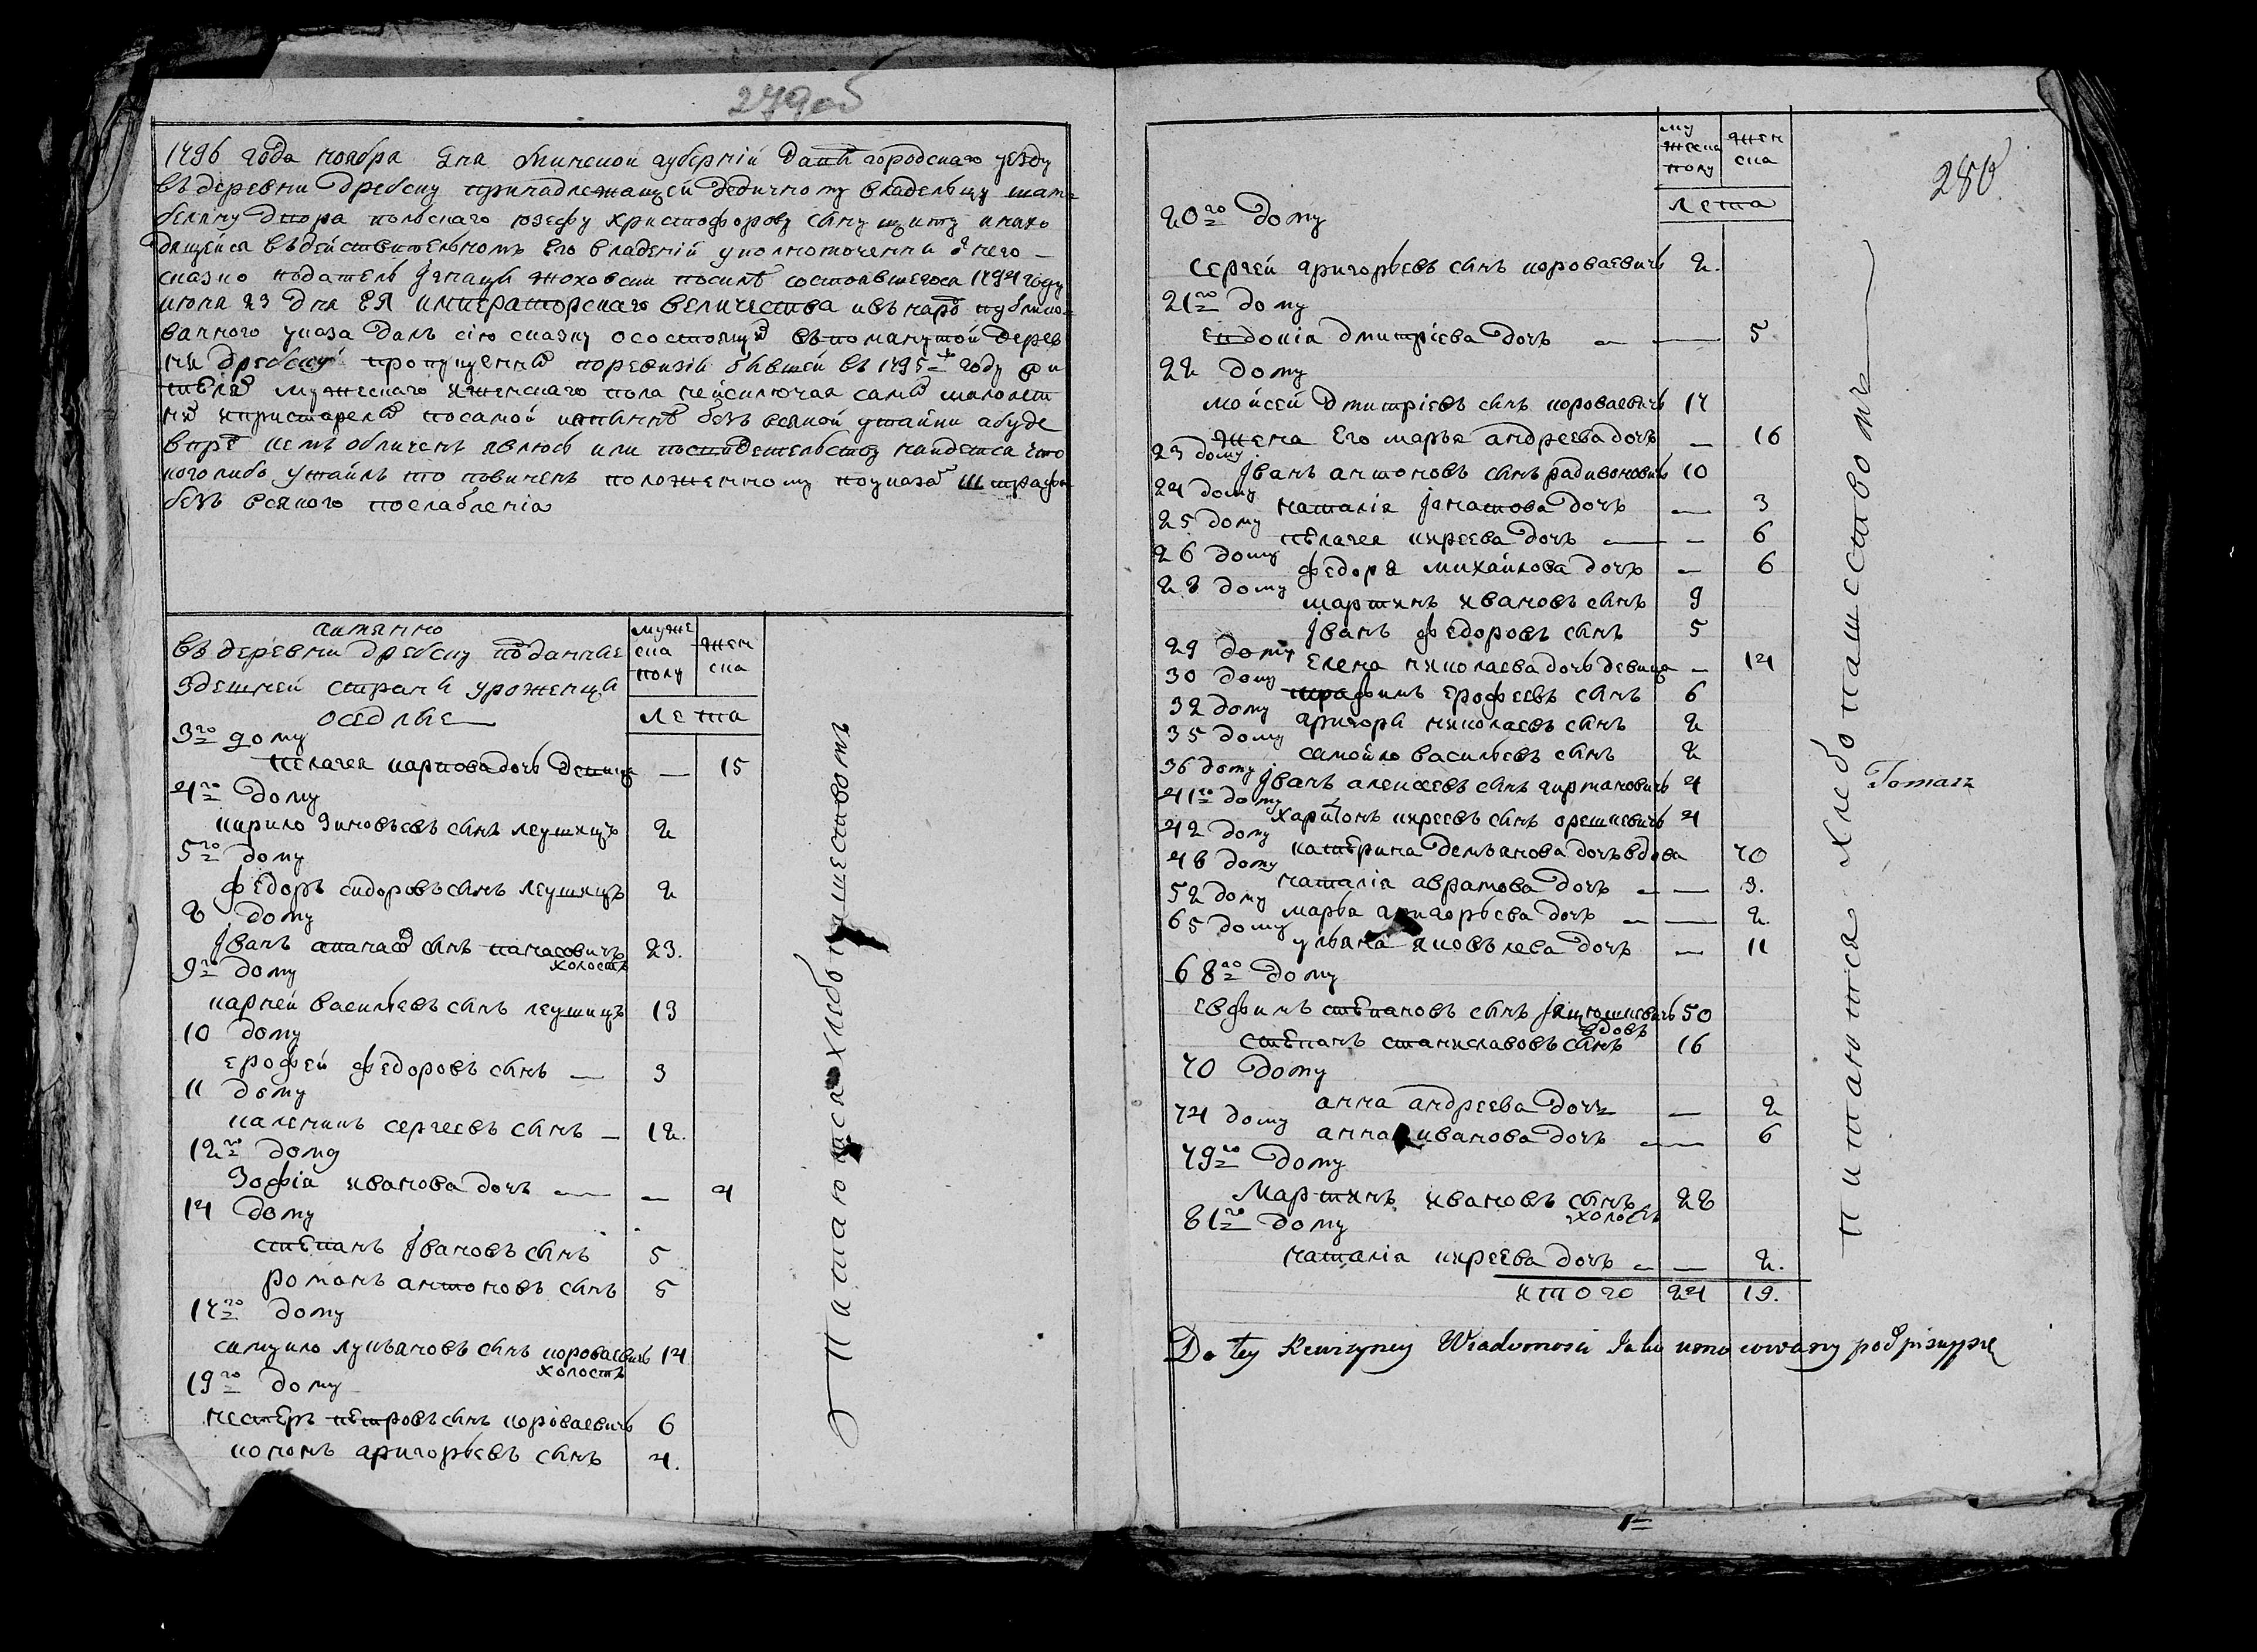 279об
1796 года ноября дня Минской губерній Давыгородскаго уезду
въ деревни дребску принадлежащей дедичному владельцу шам-
беляну двора польскаго юзефу христофорову сыну щиту и нахо
дящейся въ действительномъ его владеній уполномоченны от него
сказко податель Jгнацы жоховски посилѣ состоявшегося 1794 году
июня 23 дня ЕЯ императорскаго величества и въ народ публико-
ванного указа далъ сію сказку о состоящих въ помянутой дерев
ни дребску пропущенных по ревизіи бывшей в 1795 году
мужескаго и женскаго пола не исключая самых малолет
них и пристарелых по самой истиннѣ безъ всякой утайки а буде
впред чемъ обличенъ явлюсь или по свидетельству найдется что
кого либо утаилъ то повиненъ положенному по указам штрафу
безъ всякого послабленія
а имянно
въ деревни дребску подданные
здешней страны уроженцы
оседлые
муже
ска
полу
жен
ска
лета
3го дому
пелагея карпова дочь девица — 15
4го дому
кирило зиновьевъ сынъ леушицъ 2
5го дому
федоръ сидоровъ сынъ леушицъ 2
8 дому
Jванъ апанасов сынъ панасовичъ 23.
холостъ
9го дому
карней васильевъ сынъ леушицъ 13
10 дому
ерофей федоровъ сынъ — 3
11 дому
каленикъ сергеевъ сынъ — 12.
12го дому
Зофія иванова дочь — — 4
14 дому
степанъ Jвановъ сынъ 5
романъ антоновъ сынъ 5
17го дому
самуило лукьяновъ сынъ короваевичъ 14
холостъ
19го дому
нестеръ петровъ сынъ короваевичъ 6
кононъ григорьевъ сынъ 4.
Питаются хлебопашествомъ
280
му
жеска
полу
жен
ска
лета
20го дому
сергей григорьевъ сынъ короваевичъ 2.
21го дому
евдокія дмитріева дочь — — 5
22 дому
мойсей дмитріевъ сынъ короваевичъ 17
жена его марья андреева дочь — 16
23 дому
Jванъ антоновъ сынъ радивоновичъ 10
24 дому
наталія Jгнатова дочь — 3
25 дому
пелагея икреева дочь — — 6
26 дому
федора михайлова дочь — 6
28 дому
мартинъ ивановъ сынъ 9
Jванъ федоровъ сынъ 5
29 дому
елена николаева дочь девица — 14
30 дому
трафимъ ерофеевъ сынъ 6
32 дому
григоры николаевъ сынъ 2
35 дому
самойло васильевъ сынъ 2
36 дому
Jванъ алексеевъ сынъ гирмановичъ 4
41го дому
харитонъ икреевъ сынъ орешкевичъ 4
42 дому
катерина демьянова дочь вдова 70
48 дому
наталія аврамова дочь — — 3.
52 дому
марья григорьева дочь — — 2.
65 дому
ульяна яковълева дочь — 11
68го дому
евфимъ степановъ сынъ 50
вдовъ
степанъ станиславовъ сынъ 16
70 дому
анна андреева дочь — 2
74 дому
анна иванова дочь — — 6
79го дому
Мартинъ ивановъ сынъ 28
холостъ
81го дому
наталія икреева дочь — — 2.
итого 24 19.
Питаются хлебопашествомъ
Tomasz
Do tey Rewizyney Wiadomosci Jako umocowany podpisuię się